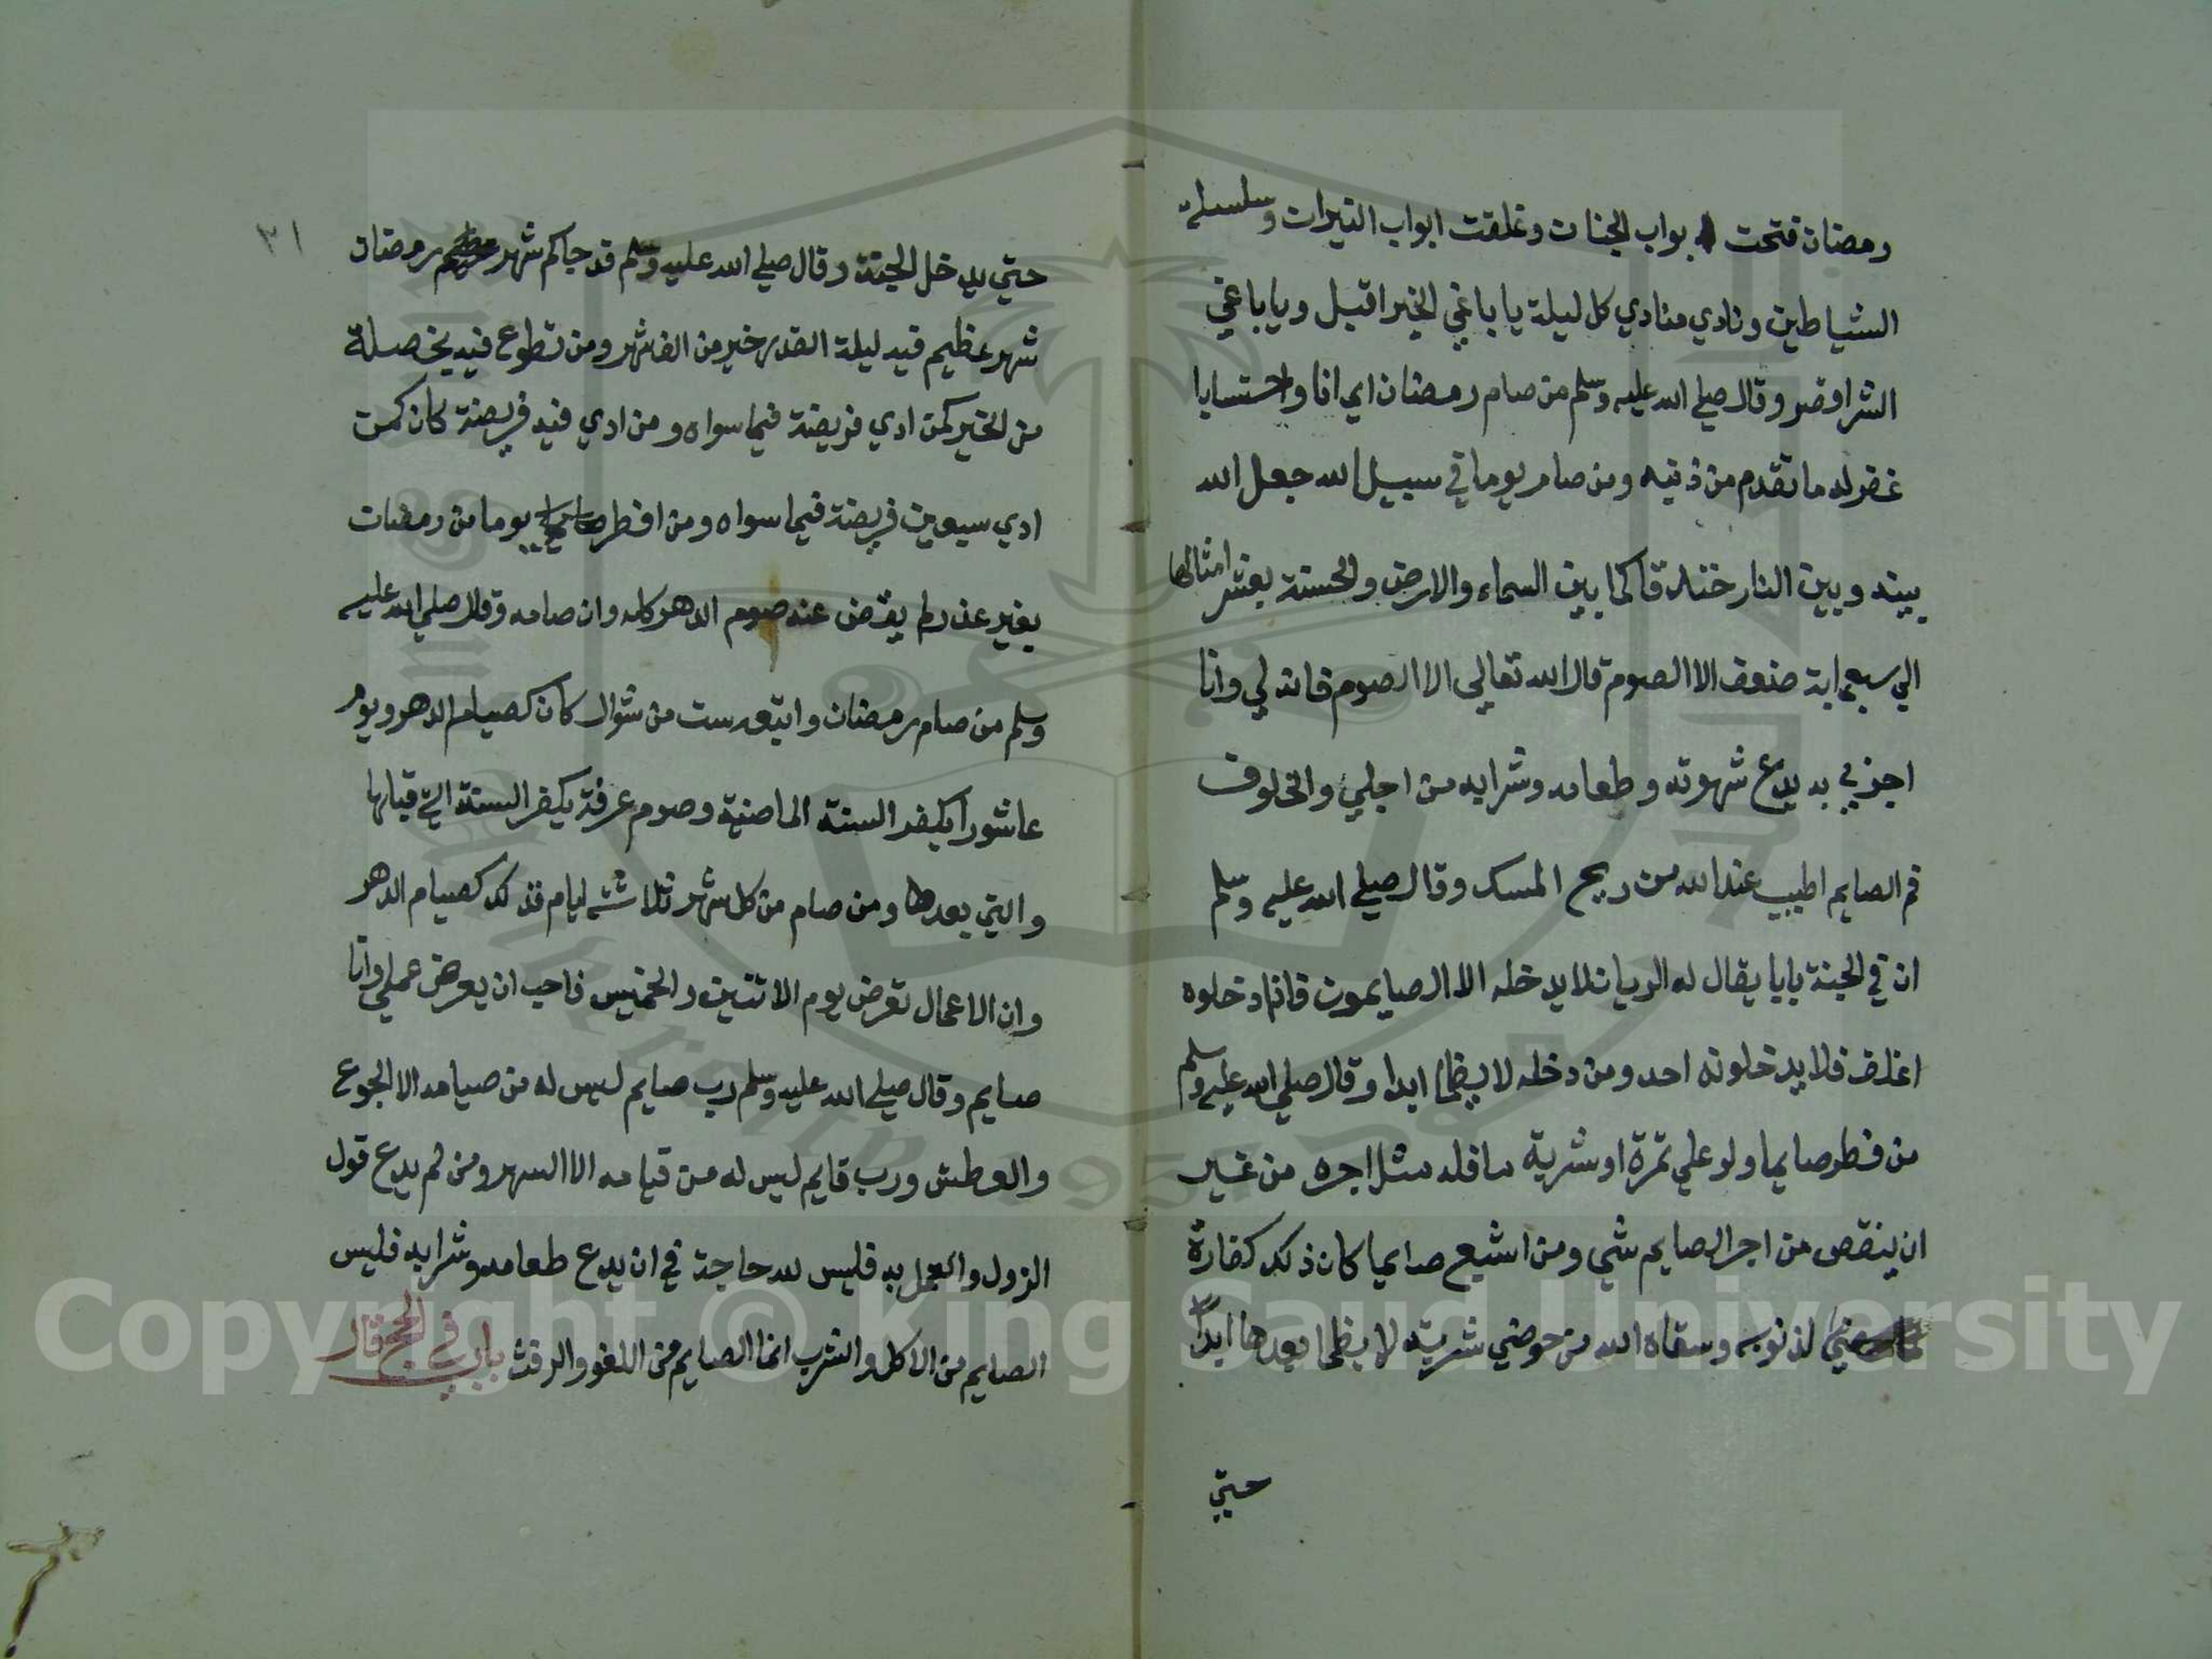 رمضان فتحت ابواب الجنان وغلقت ابواب النيران وسلسلت
الشياطين ونادي منادي كل ليلة يا باغي الخير اقبل ويا باغي
الشر اقصر وقال صلي الله عليه وسلم من صام رمضان ايمانا واحتسابا
غفر له ما تقدم من ذنبه ومن صام يوما في سبيل الله جعل الله
بينه وبين النار خندقا كما بين السماء والارض والحسنة بعشر امثالها
الي سبعماية ضعف الا الصوم قال الله تعالي الا الصوم فانه لي وانا
اجزي به يدع شهوته وطعامه وشرابه من اجلي والخلوف
فم الصايم اطيب عند الله من ريح المسك وقال صلي الله عليه وسلم
ان في الجنة بابا يقال له الريان لا يدخله الا الصايمون فاذا دخلوه
اغلق فلا يدخلونه احد ومن دخله لا يظما ابدا وقال صلي الله عليه وسلم
من فطر صايما ولو علي تمرة او شربة ما فله مثل اجره من غير
ان ينقص من اجر الصايم شي ومن اشبع صايما كان ذلك كفارة
لذنوبه وسقاه الله من حوضي شربة لا يظما بعدها ابدا
حتي
٣١
حتي يدخل الجنة وقال صلي الله عليه وسلم قد جاكم شهر رمضان
شهر عظيم فيه ليلة القدر خير من الف شهر ومن تطوع فيه بخصلة
من الخير كمن ادي فريضة فيما سواه ومن ادي فيه فريضة كان كمن
ادي سبعين فريضة فيما سواه ومن افطر يوما من رمضان
بغير عذر لم يقض عنه صوم الدهر كله وان صامه وقال صلي الله عليه
وسلم من صام رمضان واتبعه ست من شوال كان كصيام الدهر ويوم
عاشورا يكفر السنة الماضية وصوم عرفة يكفر السنة التي قبلها
والتي بعدها ومن صام من كل شهر ثلاثة ايام فذلك كصيام الدهر
وان الاعمال تعرض يوم الاثنين والخميس فاحب ان يعرض عملي وانا
صايم وقال صلي الله عليه وسلم رب صايم ليس له من صيامه الا الجوع
والعطش ورب قايم ليس له من قيامه الا السهر ومن لم يدع قول
الزول والعمل به فليس لله حاجة في ان يدع طعامه وشرابه فليس
الصايم من الاكل والشرب انما الصايم من اللغو والرفث باب في الحج قال
Copyright © King Saud University